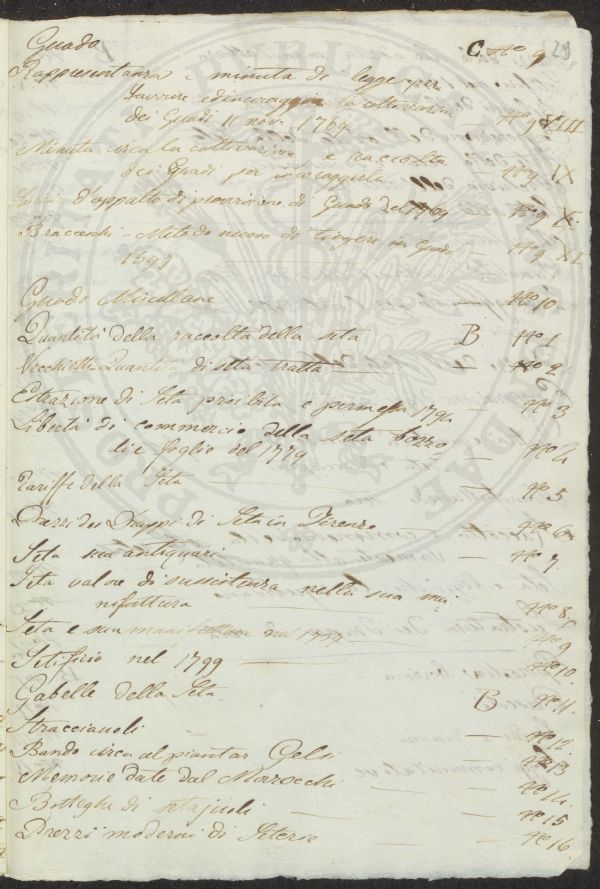 Guado C N° 9 29
Rappresentanza e minuta di legge per
favorire ed incoraggire la coltivazione
dei Guadi 11 nov. 1769 — N° 9 VIII
Minuta circa la coltivazione e raccolta
dei Guadi per incoraggirla — N° 9 IX
d'appalto di provisione di Guado del 1769 — N° 9 X
Bracceschi - Metodo nuovo di tingere in Guado
1691 — N° 9 XI
Guado Miscellane — N° 10
Quantità della raccolta della seta B N° 1
Vecchietti Quantità di seta tratta — N° 2
Estrazione di Seta proibita e permessa 1794 — N° 3
Libertà di commercio della seta bozzo
li e foglie del 1779 — N° 4
Tariffe della Seta — N° 5
Prezzi dei Drappi di Seta in Firenze — N° 6
Seta sua antiquari — N° 7
Seta valore di sussistenza nella sua ma
nifattura — N° 8
Seta e sua manifattura nel 1797 — N° 9
Setificio nel 1799 — N° 10
Gabelle della Seta B N° 11
Stracciaioli — N° 12
Bando circa al piantar Gelsi — N° 13
Memorie date dal Marocchi — N° 14
Botteghe di setajuoli — N° 15
Prezzi moderni di Seterie — N° 16
PRO TRIBUNATU PUBLICAE